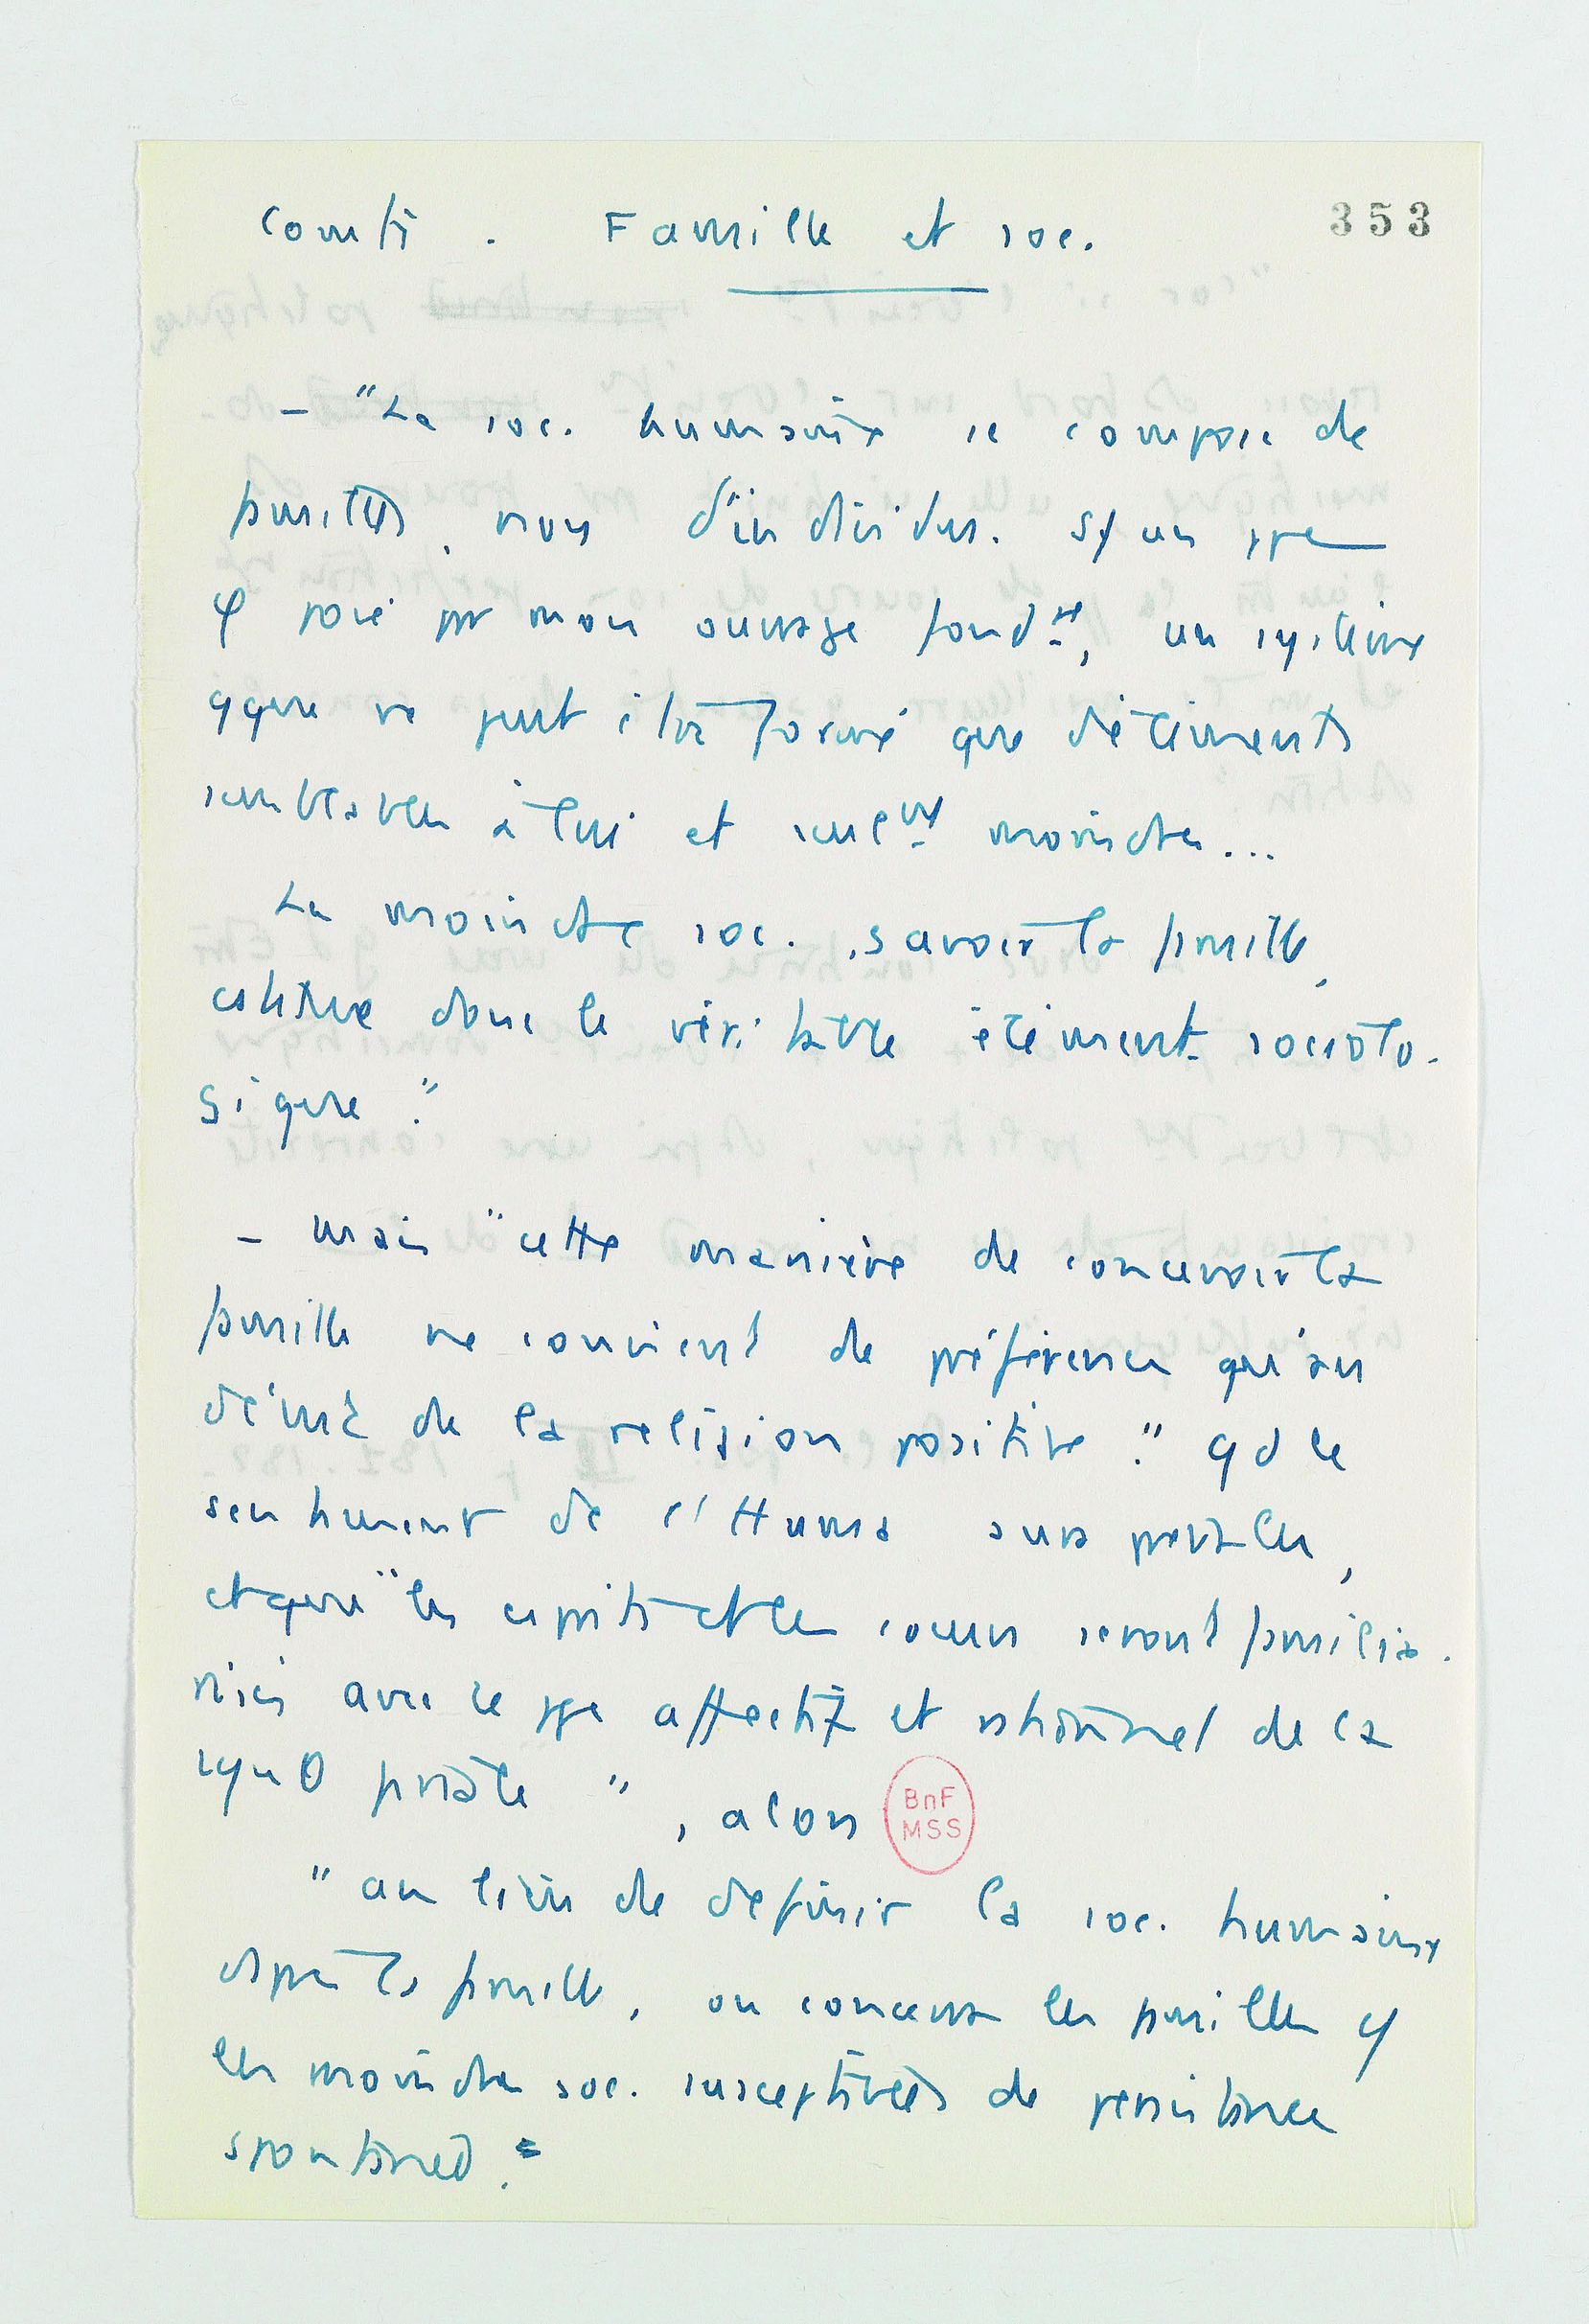 Comte . Famille et soc.
353
– "La soc. humaine se compose de
familles, non d'individus. S/ un ppe
φ posé par mon ouvrage fondt, un système
qque ne peut être formé que d'éléments
semblables à lui et seulnt moindres...
La moindre soc. , savoir la famille,
constitue donc le véritable élément sociolo-
gique."
– Mais "cette manière de concevoir la
famille ne convient de préférence qu'au
début de la religion positive". Qd le
sentiment de l'Huma aura prévalu,
et que "les esprits et les cœurs seront familia-
risés avec le ppe affectif et rationnel de la
synθ finale", alors
BnF
MSS
"au lieu de définir la soc. humaine
d'après la famille, on concevra les familles c/
les moindres soc. susceptibles de persistance
spontanée."